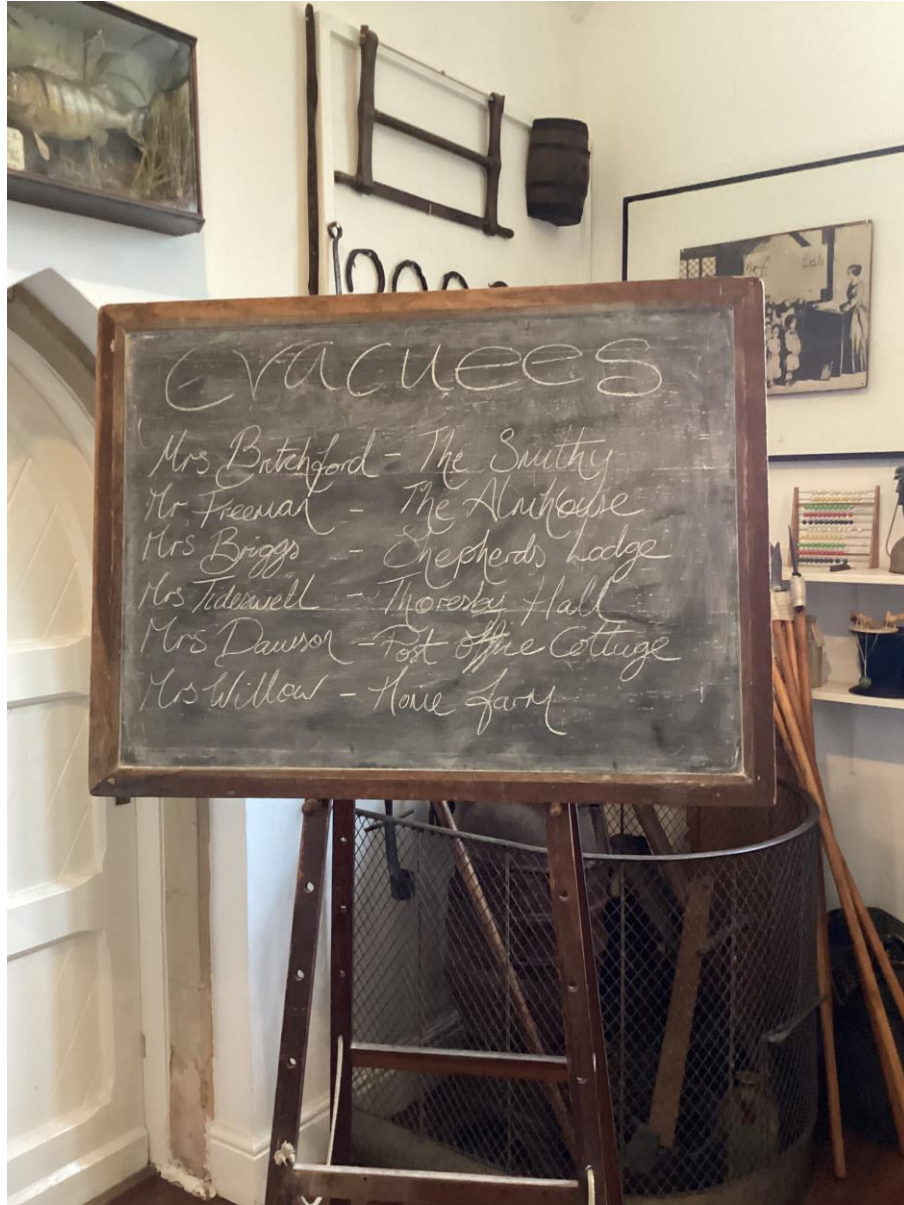 evacuees
Mrs Britchford - The Smithy
Mr Freeman - The Almhouse
Mrs Briggs - Shepherds Lodge
Mrs Tideswell - Thoresby Hall
Mrs Dawson - Post Office Cottage
Mrs Willow - Home farm